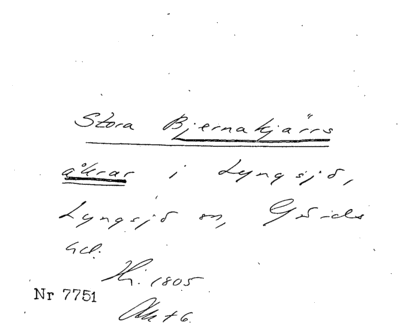 Stora Bjernakjärrs
åkrar i Lyngsjö,
Lyngsjö sn, Gärds
hd.
Hi. 1805
Nr 7751
Akt 6.